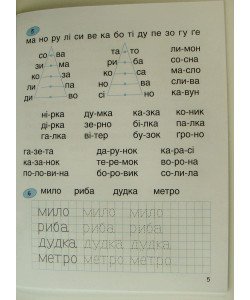 5
ма но ру лі си ве ка бо ті ду пе зо гу ге
со ва та то ли-мон
зи ма ри ба со-сна
ко за ко са ма-сло
ли па но
ди во сі но ка-вун
ні-рка ду-мка ка-зка ко-ник
ді-рка зе-рно бі-лка па-лка
га-лка ві-тер бу-зок ґро-но
га-зе-та да-ру-нок ка-ра-сі
ка-за-нок те-ре-мок во-ро-на
по-ло-ви-на бо-ро-вик со-ли-ла
6 мило риба дудка метро
мило мило мило
риба риба риба
дудка дудка дудка
метро метро метро
5